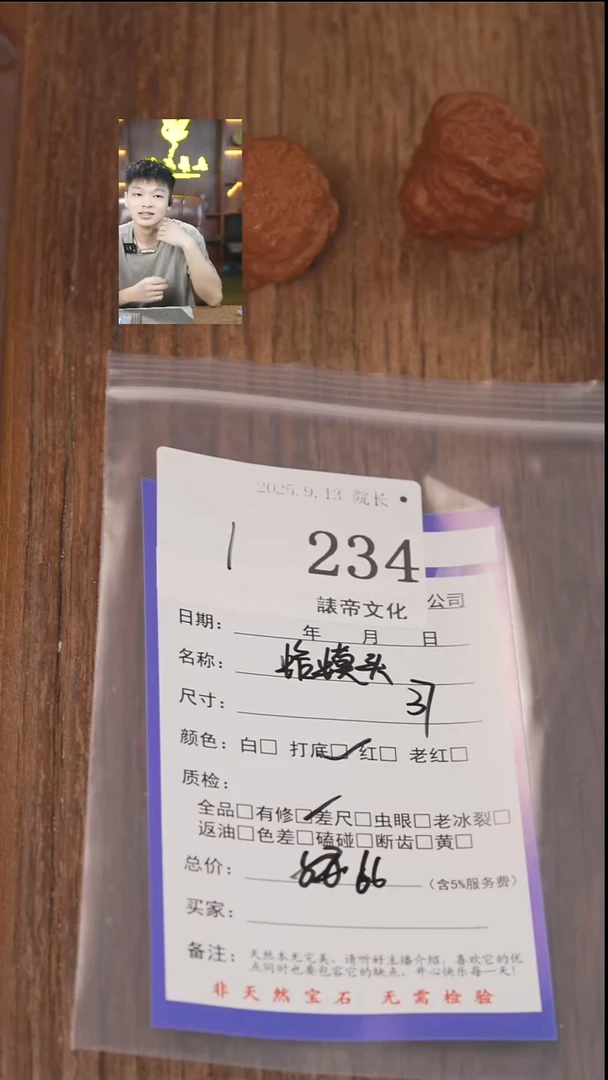 2025.9.13 院长
1 234
諘帝文化 公司
日期： 年 月 日
名称：
尺寸： 37
颜色：白□ 打底□ 红□ 老红□
质检：
全品□有修□差尺□虫眼□老冰裂□
返油□色差□磕碰□断齿□黄□
总价： 66 （含5%服务费）
买家：
备注：天然本无完美，请听好主播介绍，喜欢它的优
点同时也要包容它的缺点，开心快乐每一天！
非天然宝石 无需检验